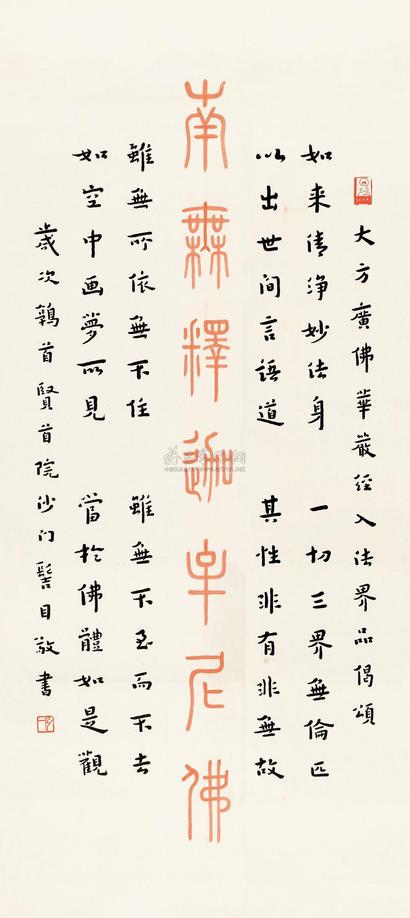 大方廣佛華嚴經入法界品偈頌
如来清淨妙法身 一切三界無倫匹
以出世間言語道 其性非有非無故
南無釋迦牟尼佛
雖無所依無不住 雖無不至而不去
如空中画夢所見 當於佛體如是觀
歲次鶉首賢首院沙门髻目敬書